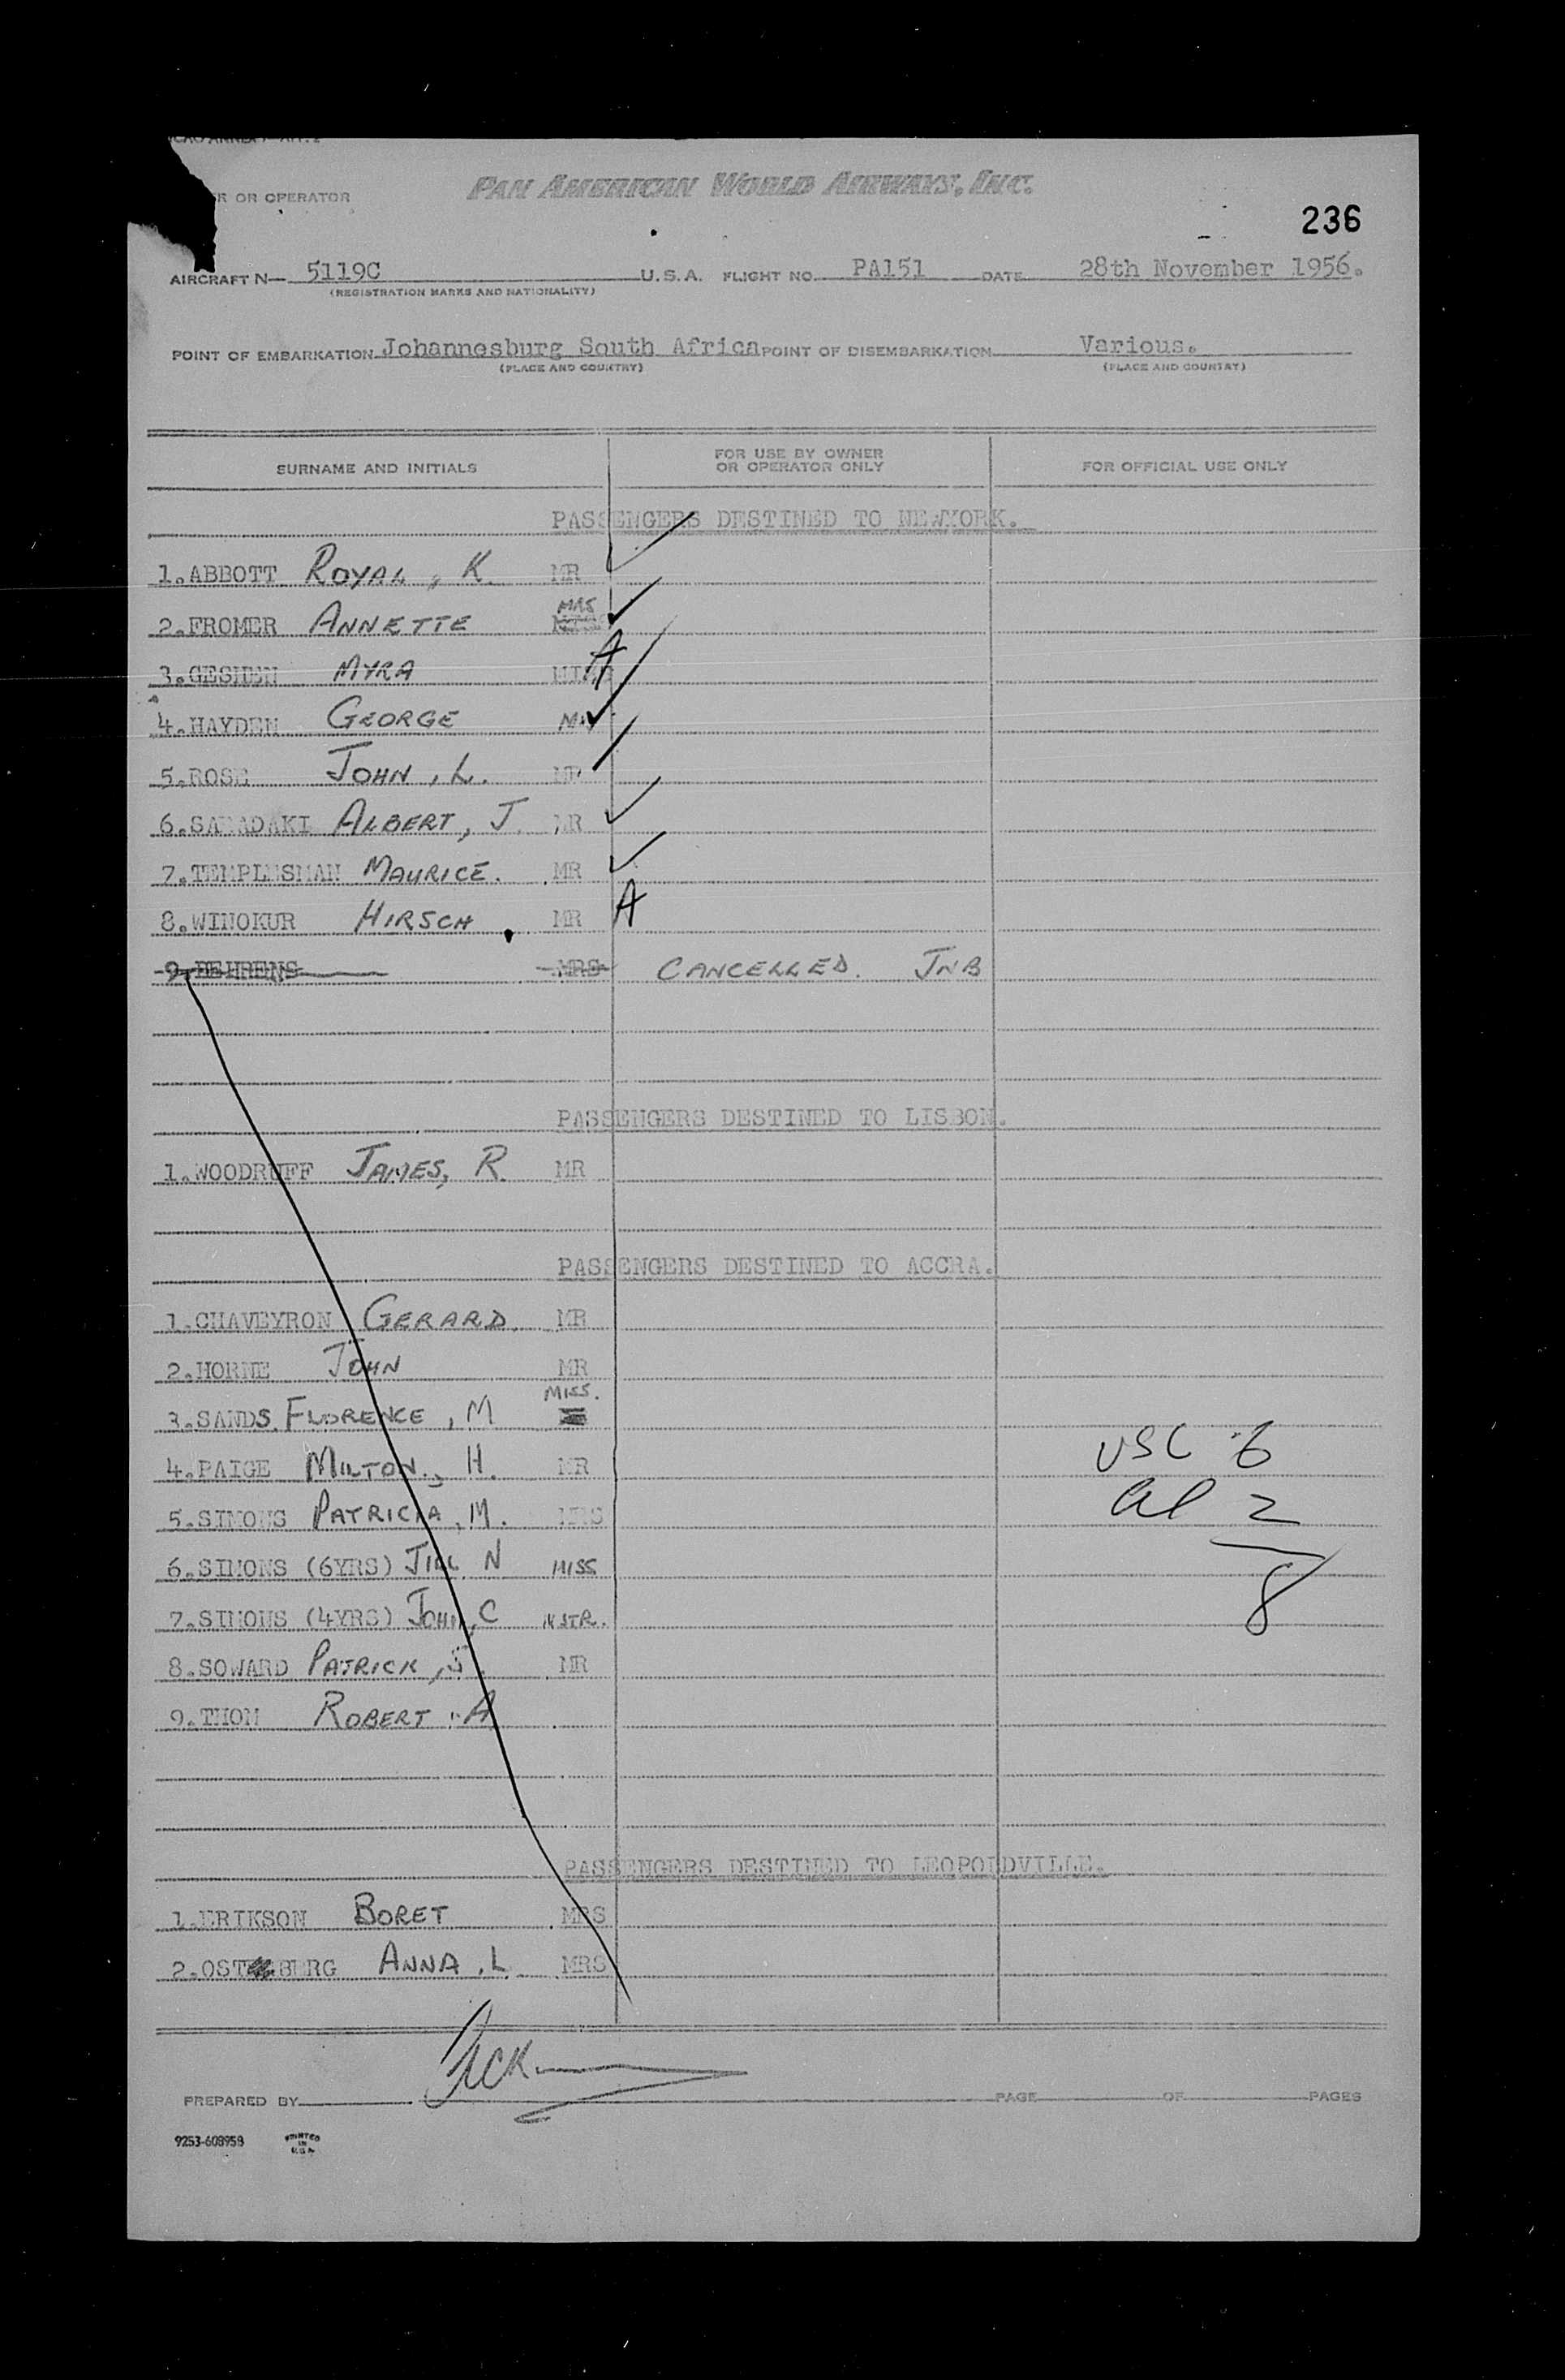 ICAO ANNEX 9 APP. 2
R OR OPERATOR PAN AMERICAN WORLD AIRWAYS, INC.
236
AIRCRAFT N— 5119C U.S.A. FLIGHT NO. PA151 DATE 28th November 1956.
(REGISTRATION MARKS AND NATIONALITY)
POINT OF EMBARKATION Johannesburg South Africa POINT OF DISEMBARKATION Various.
(PLACE AND COUNTRY) (PLACE AND COUNTRY)
SURNAME AND INITIALS FOR USE BY OWNER OR OPERATOR ONLY FOR OFFICIAL USE ONLY
PASSENGERS DESTINED TO NEWYORK.
1.ABBOTT ROYAL, K. MR ✓
2.FROMER ANNETTE MRS ✓
3.GESHEN MYRA MISS A
4.HAYDEN GEORGE MR ✓
5.ROSE JOHN, L. MR
6.SAMADAKI ALBERT, J. MR ✓
7.TEMPLESMAN MAURICE. MR ✓
8.WINOKUR HIRSCH. MR A
9.BEHRENS MRS CANCELLED. JNB
PASSENGERS DESTINED TO LISBON.
1.WOODRUFF JAMES, R. MR
PASSENGERS DESTINED TO ACCRA.
1.CHAVEYRON GERARD. MR
2.HORNE JOHN MR
3.SANDS. FLORENCE, M MISS.
4.PAIGE MILTON, H. MR
USC 6
5.SIMONS PATRICIA, M. MRS
al 2
6.SIMONS (6YRS) JILL N MISS
7.SIMONS (4YRS) JOHN, C MSTR.
8
8.SOWARD PATRICK, J. MR
9.THOM ROBERT A
PASSENGERS DESTINED TO LEOPOLDVILLE.
1.ERIKSON BORET MRS
2.OST BERG ANNA, L. MRS
PREPARED BY PAGE OF PAGES
9253-608958 PRINTED IN U.S.A.